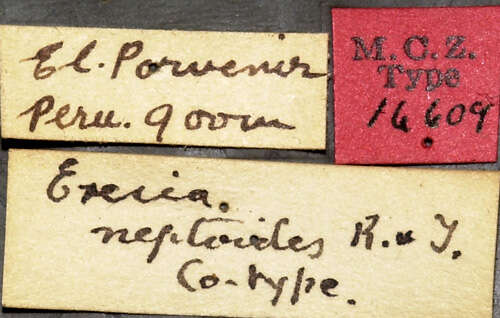 El. Porvenir
Peru. 900m
M.C.Z.
Type
16609
Eresia.
neptoides K. & T.
Co-type.